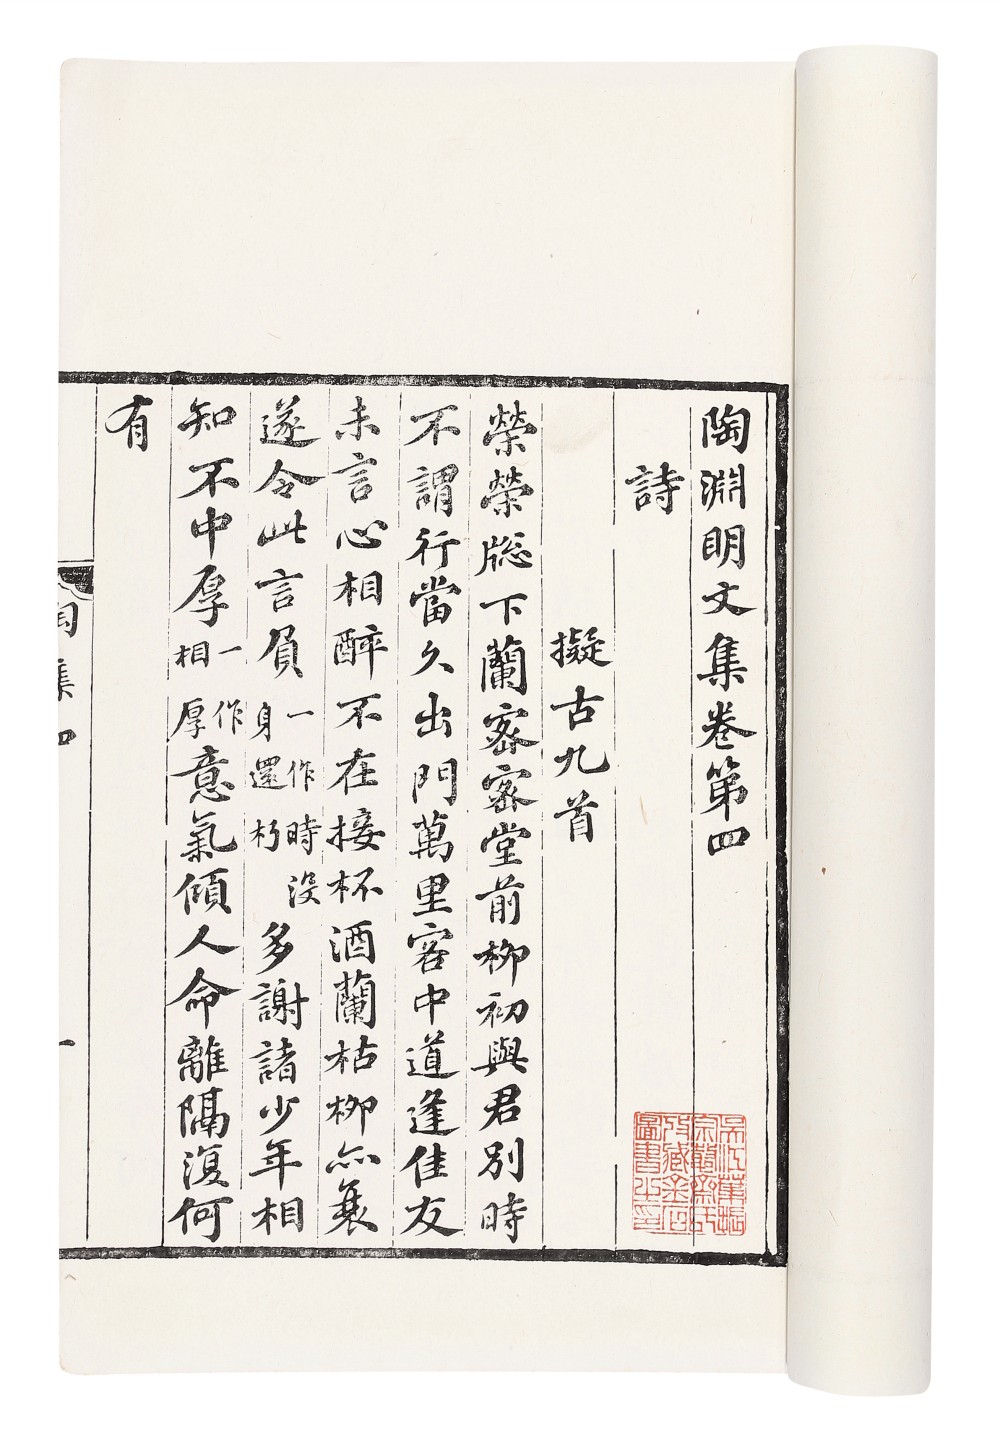 陶淵明文集卷第四
詩
擬古九首
榮榮牕下蘭密密堂前栁初與君別時
不謂行當久出門萬里客中道逢佳友
未言心相醉不在接杯酒蘭枯栁亦衰
遂令此言負一作時没身還朽多謝諸少年相
知不中厚一作相厚意氣傾人命離隔復何
有
集四
一